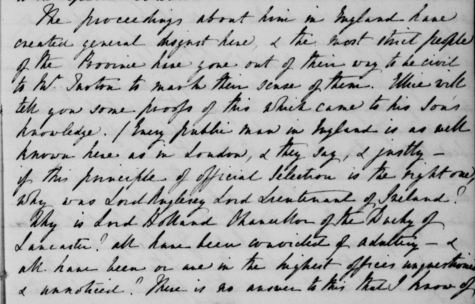 The proceedings about him in England have
created general disgust here, & the most strict people
of the Province have gone out of their way to be civil
to Mr. Turton to mark their sense of them. Ellice will
tell you some proofs of this which came to his Sons
knowledge. / Every public man in England is as well
known here as in London, & they say, & justly –
if this principle of official selection is the right one,
why was Lord Anglesey Lord Lieutenant of Ireland?
Why is Lord Holland Chancellor of the Duchy of
Lancaster? all have been convicted of adultery – &
all have been or are in the highest offices unquestioned
& unnoticed? There is no answer to this that I know of